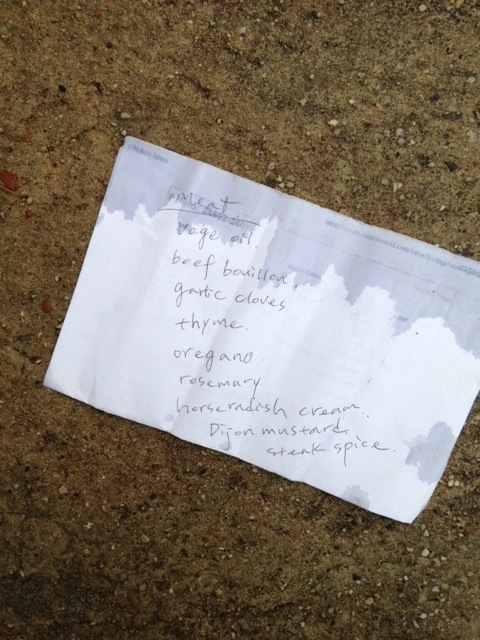 meat
vege oil.
beef bouillon.
garlic cloves
thyme.
oregano.
rosemary
horseradish cream.
Dijon mustard
steak spice.